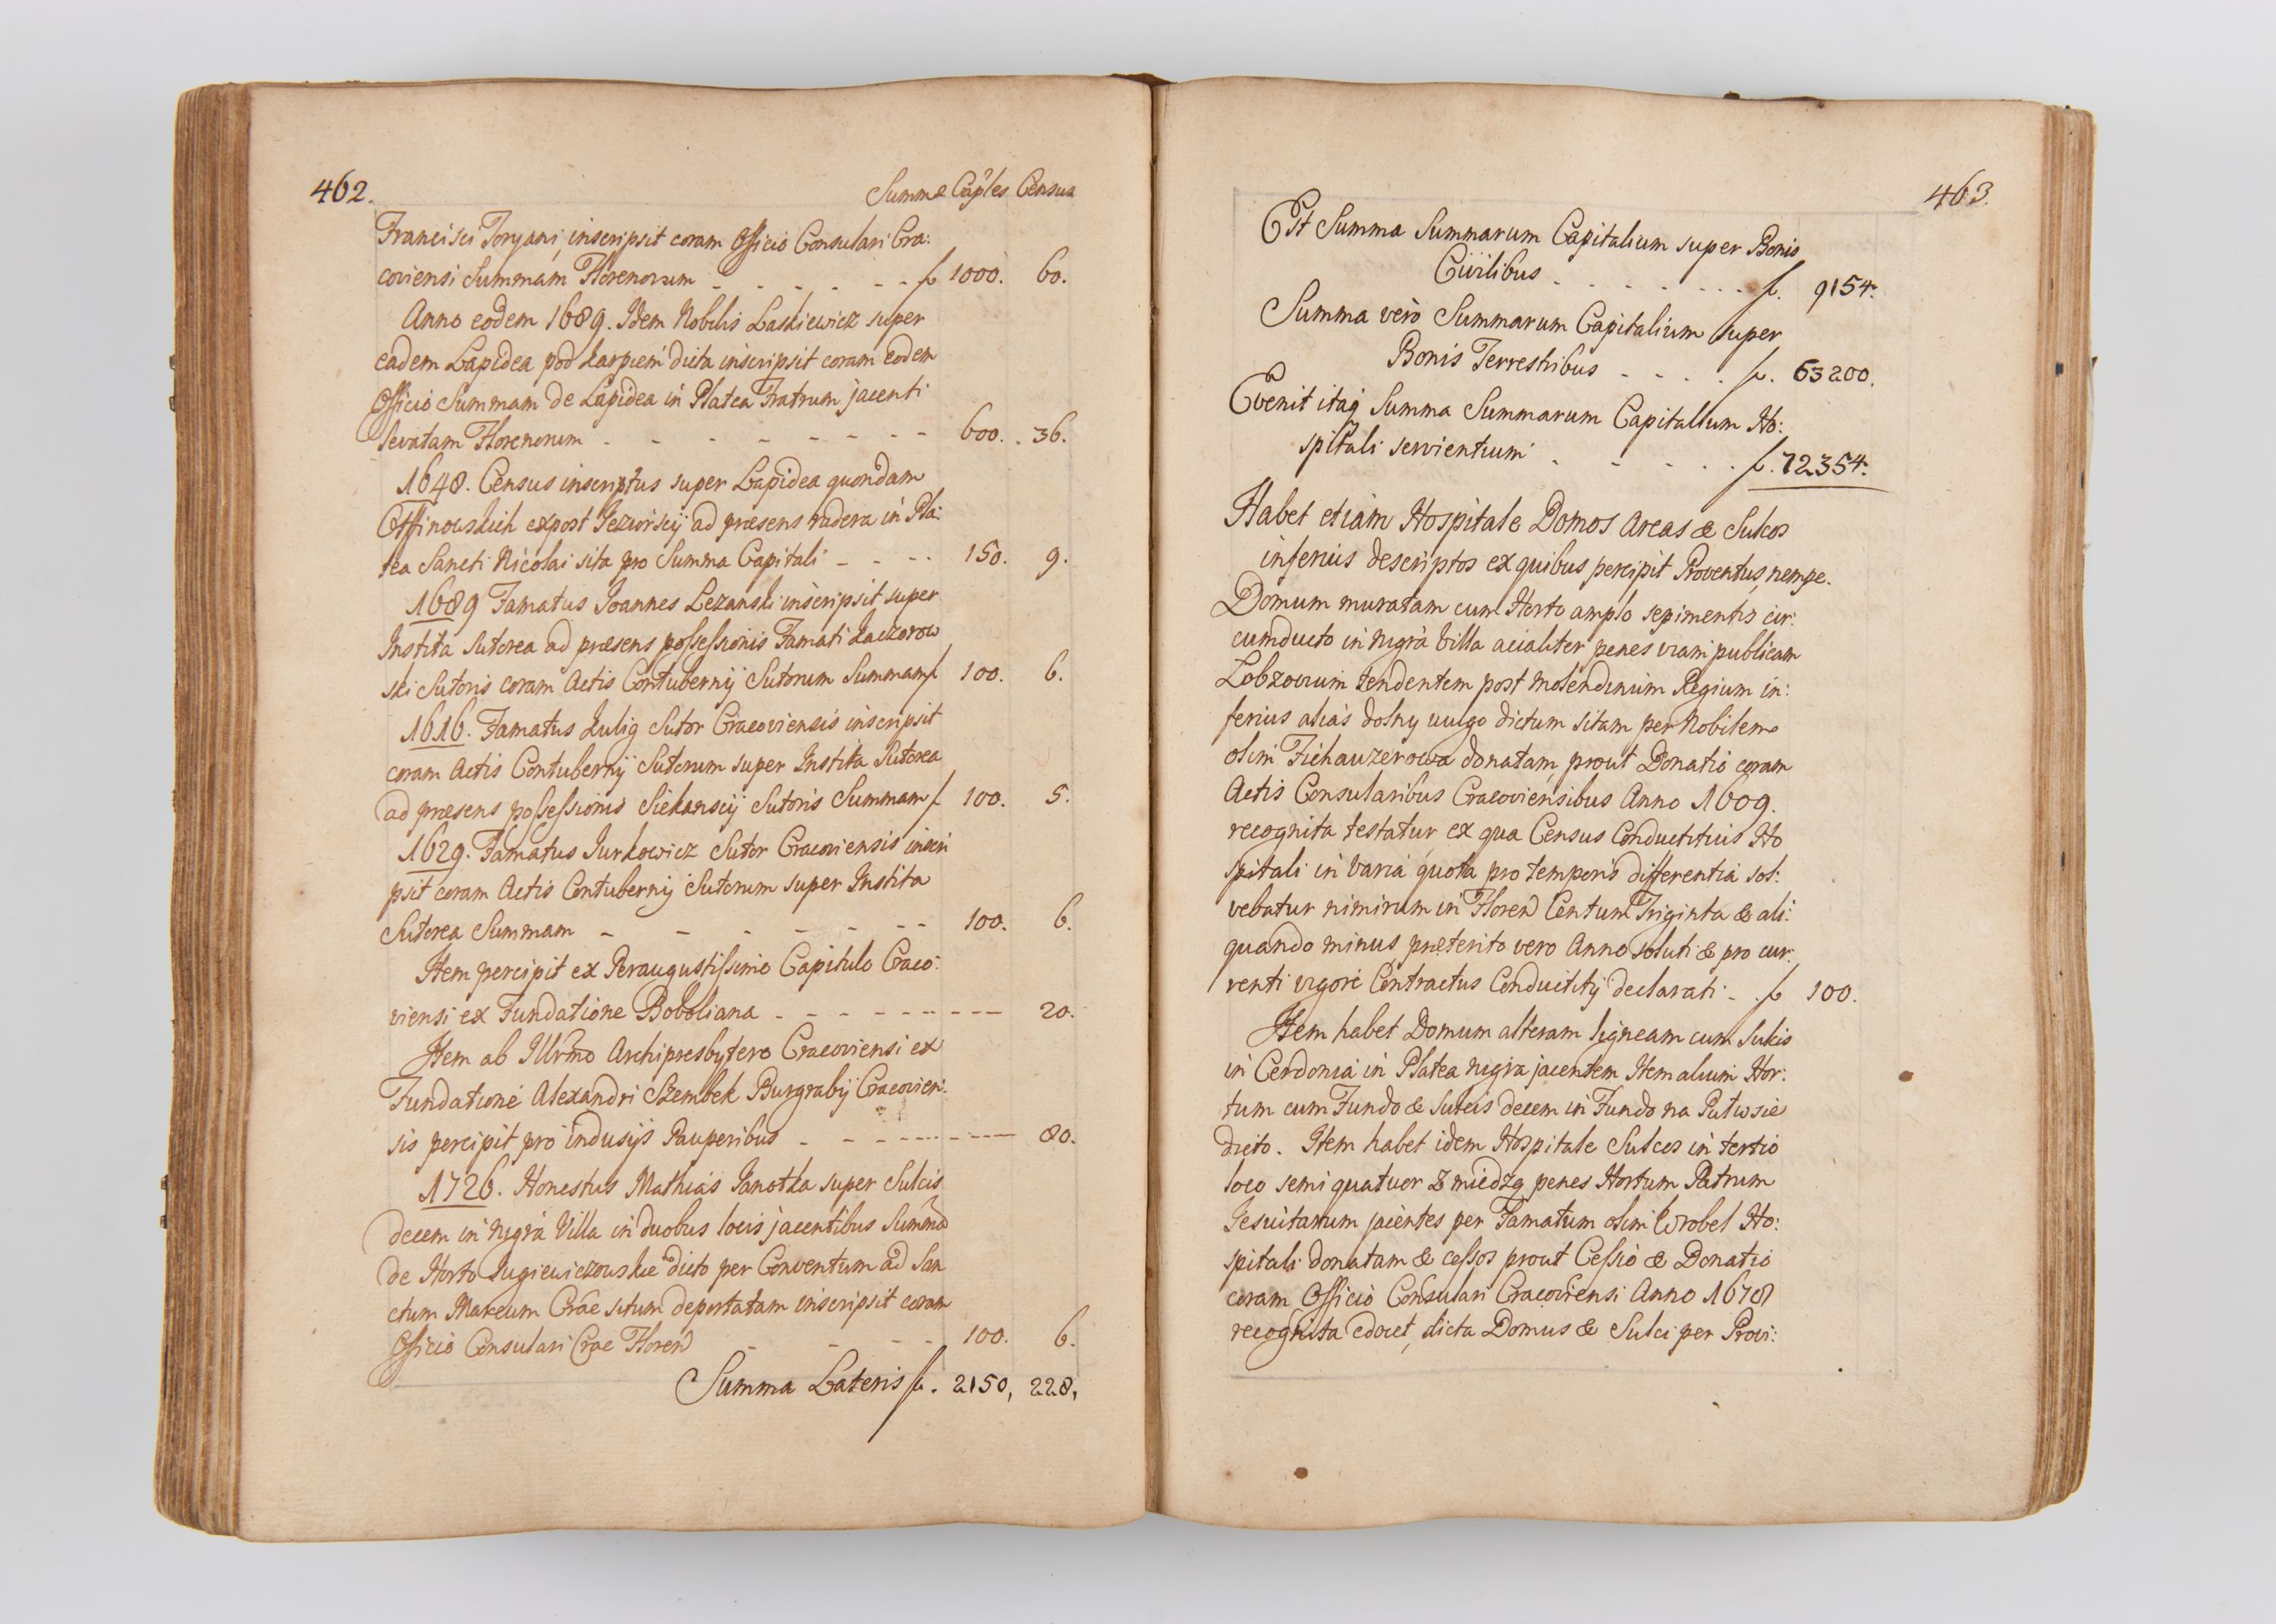 462.
Summæ Cap'les Census
Francisci Toryani, inscripsit coram Officio Consulari Cra:
coviensi Summam Florenorum - - - - - - f 1000. 60.
Anno eodem 1689. Idem Nobilis Laskiewicz super
eadem Lapidea pod Karpiem dicta inscripsit coram eodem
Officio Summam de Lapidea in Platea Fratrum jacenti
levatam Florenorum - - - - - - - - 600. 36.
1648. Census inscriptus super Lapidea quondam
expost ad præsens rudera in Pla:
tea Sancti Nicolai sita pro Summa Capitali - - - - 150. 9.
1689 Famatus Joannes Lezanski inscripsit super
Instita Sutorea ad præsens possessionis Famati Kaczorow
ski Sutoris coram Actis Contubernij Sutorum Summam f 100. 6.
1616. Famatus Kulig Sutor Cracoviensis inscripsit
coram Actis Contubernij Sutorum super Instita Sutorea
ad præsens possessionis Siekanscij Sutoris Summam f 100. 5.
1629. Famatus Jurkowicz Sutor Cracoviensis inscri
psit coram Actis Contubernij Sutorum super Instita
Sutorea Summam - - - - - - - 100. 6.
Item percipit ex Peraugustissimo Capitulo Craco:
viensi ex Fundatione Boboliana - - - - - - - - - 20.
Item ab Illrmo Archipresbytero Cracoviensi ex
Fundatione Alexandri Szembek Burgrabij Cracovien:
sis percipit pro indusijs Pauperibus - - - - - - - - 80.
1726. Honestus Mathias Janotka super Sulcis
decem in nigra Villa in duobus locis jacentibus Summa
de Horto Lugiewiczowskie dicto per Conventum ad San
ctum Marcum Crac situm deportatam inscripsit coram
Officio Consulari Crac Floren - - - - 100. 6.
Summa Lateris f. 2150, 228,
463.
Est Summa Summarum Capitalium super Bonis
Civilibus - - - - - - - f. 9154.
Summa verò Summarum Capitalium super
Bonis Terrestribus - - - - f. 63200.
Evenit itaq Summa Summarum Capitalium Ho:
spitali servientium - - - - - f. 72354.
Habet etiam Hospitale Domos Areas & Sulcos
inferius descriptos ex quibus percipit Proventus, nempe.
Domum muratam cum Horto amplo sepimentis cir:
cumducto in nigra Villa acialiter penes viam publicam
Lobzovium tendentem post Molendinum Regium in:
ferius alias dolny vulgo dictum sitam per Nobilem
olim Fichauzerowa donatam, prout Donatio coram
Actis Consularibus Cracoviensibus Anno 1609.
recognita testatur, ex qua Census Conductitius Ho
spitali in varia quota pro temporis differentia sol:
vebatur nimirum in Floren Centum Triginta & ali:
quando minus, præterito vero Anno soluti & pro cur:
renti vigore Contractus Conductitij declarati - - f 100.
Item habet Domum alteram ligneam cum Sulcis
in Cerdonia in Platea nigra jacentem Item alium Hor:
tum cum Fundo & Sulcis decem in Fundo na Putwsie
dicto. Item habet idem Hospitale Sulcos in tertio
loco semi quatuor z miedzą penes Hortum Patrum
Jesuitarum jacentes per Famatum olim Wrobel Ho:
spitali donatam & cessos prout Cessio & Donatio
coram Officio Consulari Cracoviensi Anno 1678
recognita edocet, dicta Domus & Sulci per Provi: